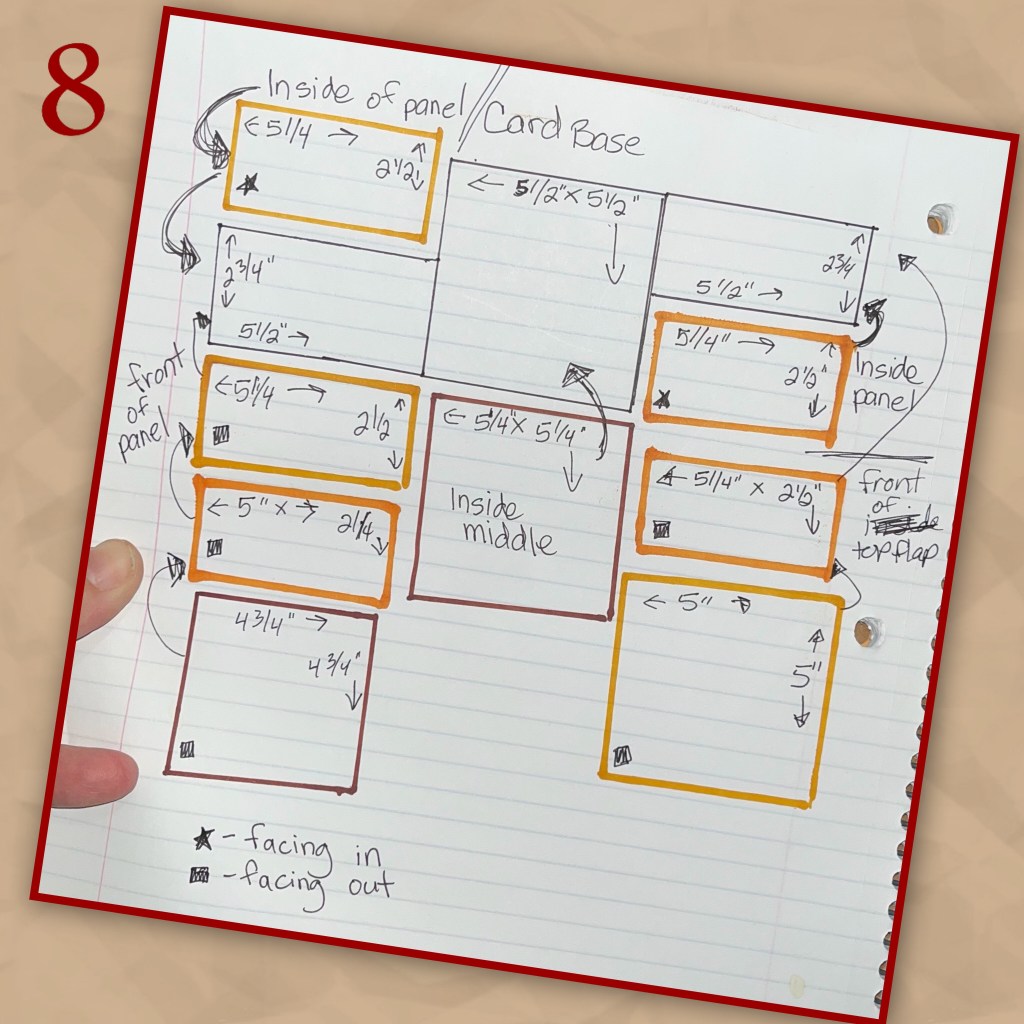 8
Inside of panel / Card Base
← 5 1/4 →
2 1/2
★
← 5 1/2" x 5 1/2"
2 3/4"
5 1/2" →
2 3/4
5 1/2" →
front
of
panel
← 5 1/4 →
2 1/2
← 5 1/4" x 5 1/4"
Inside
middle
5 1/4" →
2 1/2"
★
Inside
panel
← 5" x →
2 1/4
← 5 1/4" x 2 1/2"
front
of
top flap
4 3/4" →
4 3/4"
← 5" →
5"
★ - facing in
■ - facing out